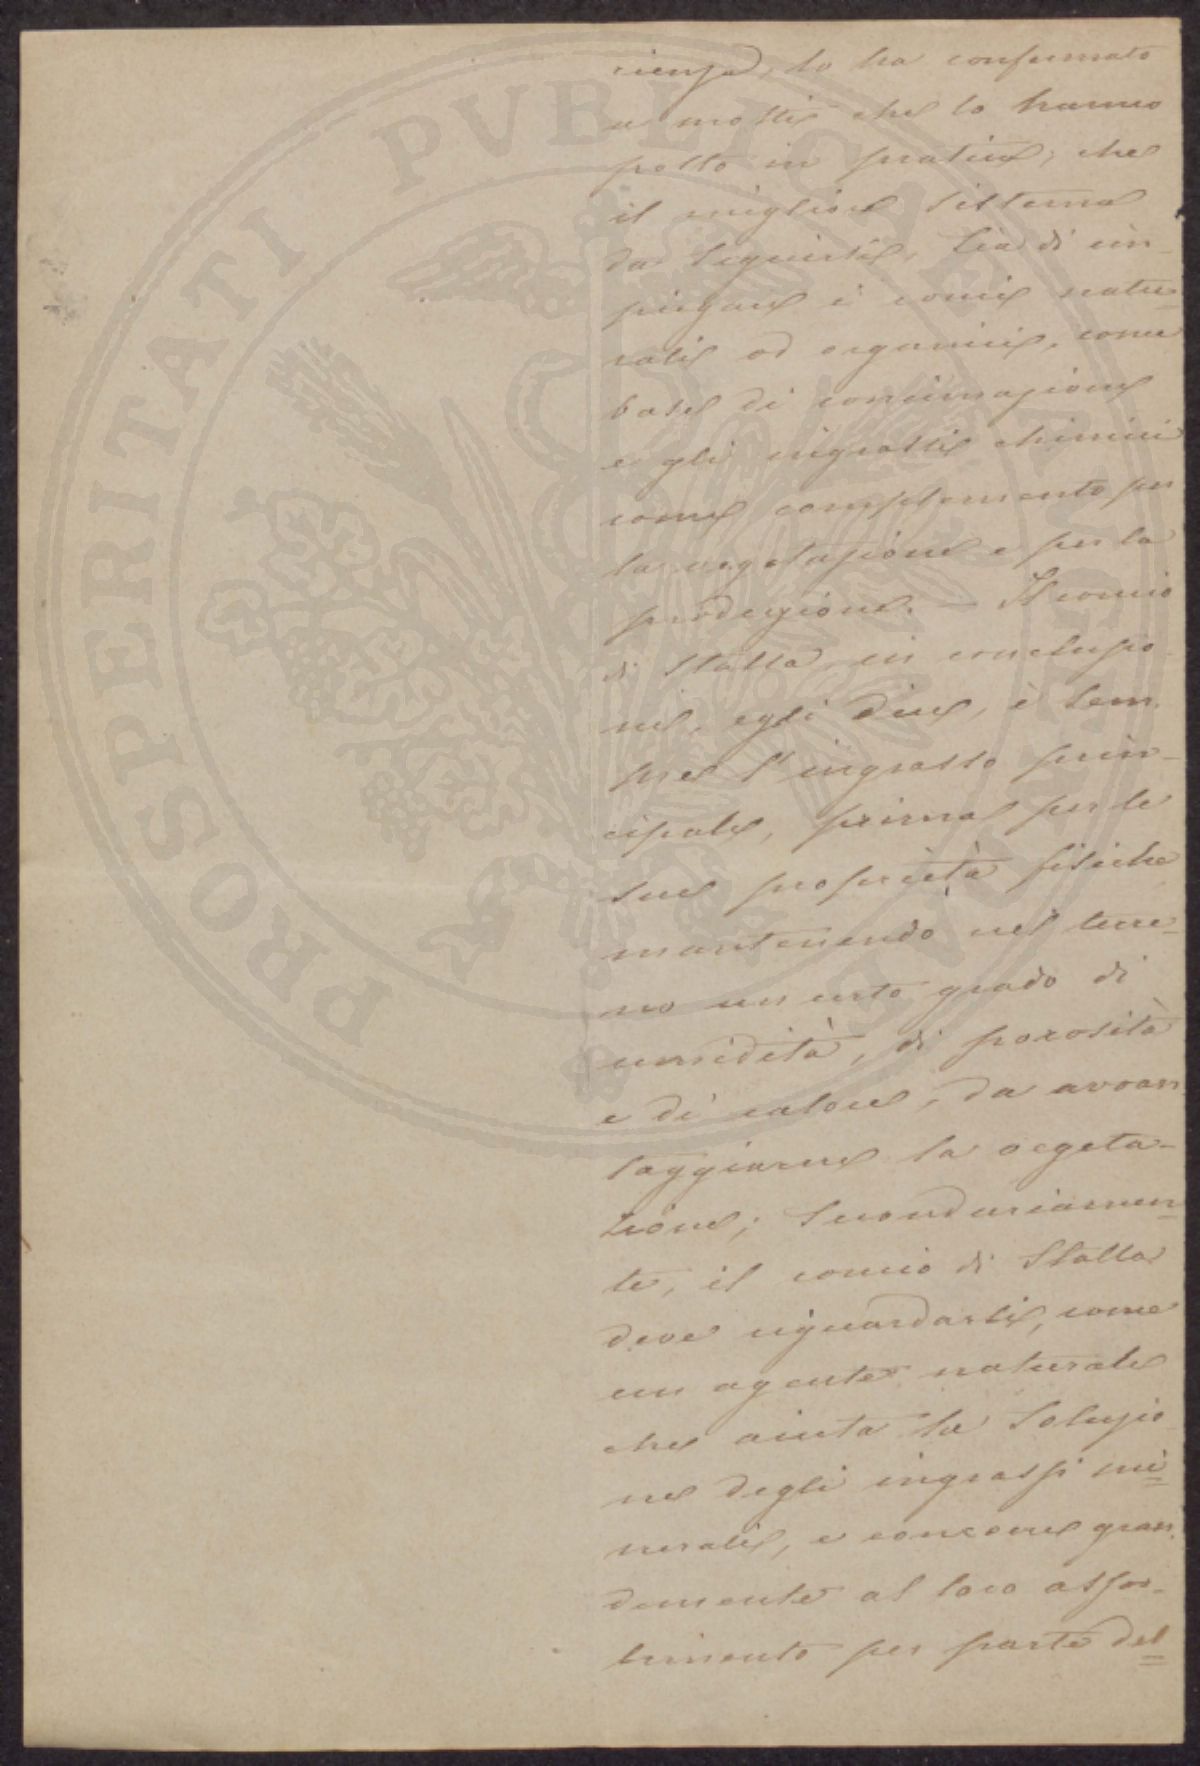 rienza, lo ha confermato
a molti che lo hanno
posto in pratica; che
il migliore sistema
da seguirsi, sia di im-
piegare i conci natu-
rali od organici, come
base di concimazione
e gli ingrassi chimici
come complemento per
la vegetazione e per la
produzione. — Il concio
di stalla, in conclusio-
ne, egli dice, è sem-
pre l'ingrasso prin-
cipale, prima per le
sue proprietà fisiche
mantenendo nel terre-
no un certo grado di
umidità, di porosità
e di calore, da avvan
taggiarne la vegeta-
zione; secondariamen-
te, il concio di stalla
deve riguardarsi, come
un agente naturale
che aiuta la soluzio-
ne degli ingrassi mi-
nerali, e concorre gran-
demente al loro assor-
bimento per parte del
PROSPERITATI PVBLICAE AVGENDAE